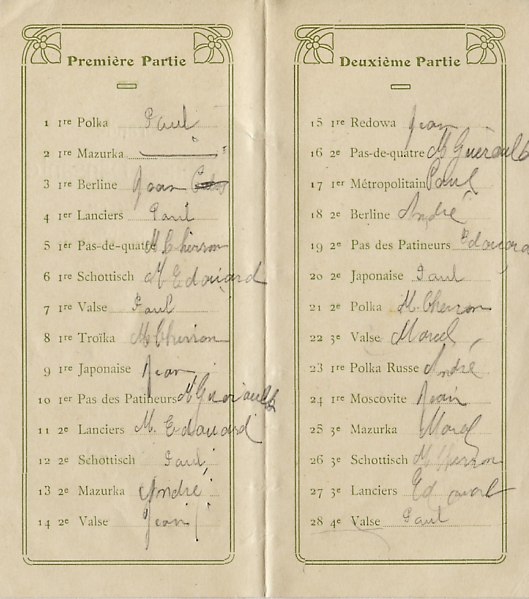 Première Partie
1 1re Polka Paul
2 1re Mazurka
3 1re Berline Jean
4 1er Lanciers Paul
5 1er Pas-de-quatre M Cherson
6 1re Schottisch M Edouard
7 1re Valse Paul
8 1re Troïka M Cherron
9 1re Japonaise Jean
10 1er Pas des Patineurs M Guerault
11 2e Lanciers M. Edouard
12 2e Schottisch Paul
13 2e Mazurka André
14 2e Valse Jean
Deuxième Partie
15 1re Redowa Jean
16 2e Pas-de-quatre M Guerault
17 1er Métropolitain Paul
18 2e Berline André
19 2e Pas des Patineurs Edouard
20 2e Japonaise Paul
21 2e Polka M. Cherron
22 3e Valse Marcel
23 1re Polka Russe André
24 1re Moscovite Jean
25 3e Mazurka Marcel
26 3e Schottisch M
27 3e Lanciers Edouard
28 4e Valse Paul